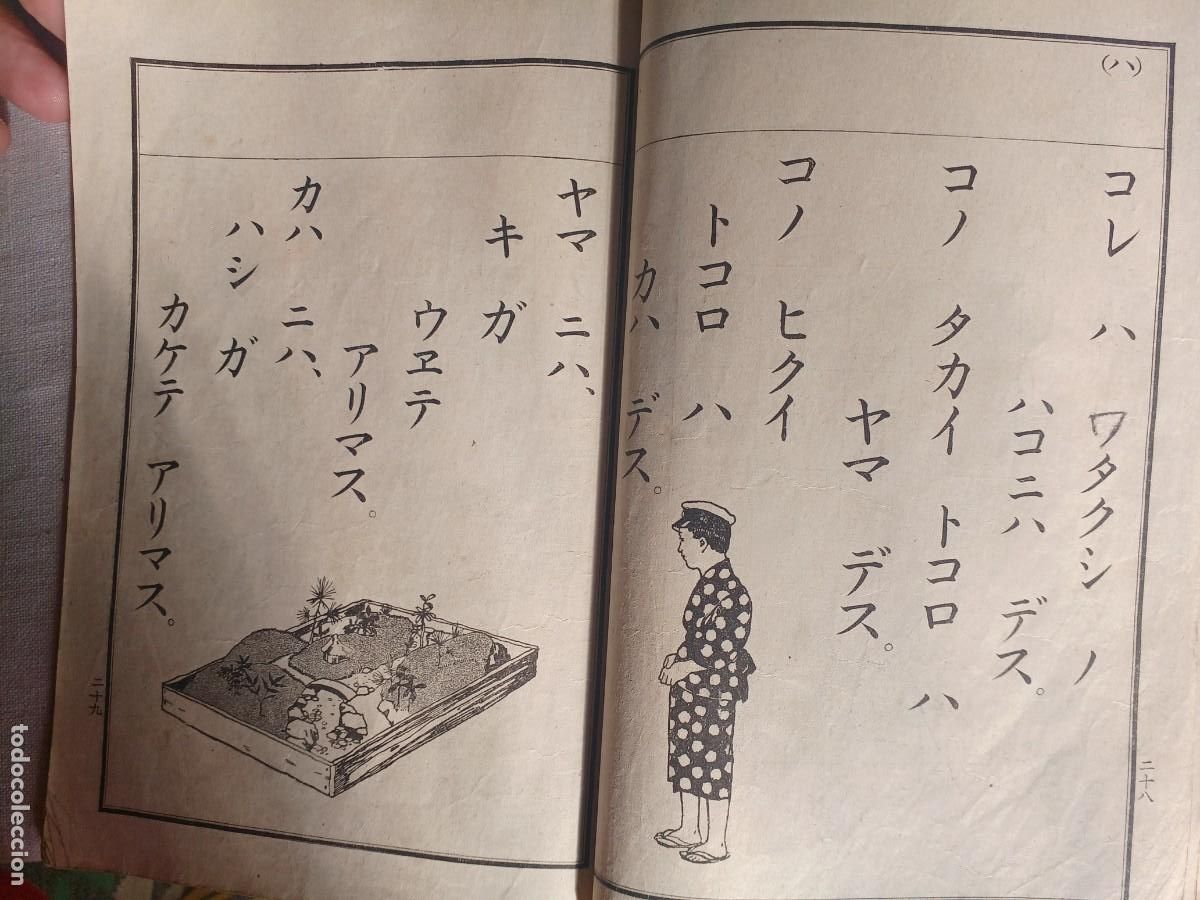 (ハ)
コレ ハ ワタクシ ノ
ハコニハ デス。
コノ タカイ トコロ ハ
ヤマ デス。
コノ ヒクイ
トコロ ハ
カハ デス。
二十八
ヤマ ニハ、
キ ガ
ウヱテ
アリマス。
カハ ニハ、
ハシ ガ
カケテ アリマス。
二十九
todocoleccion